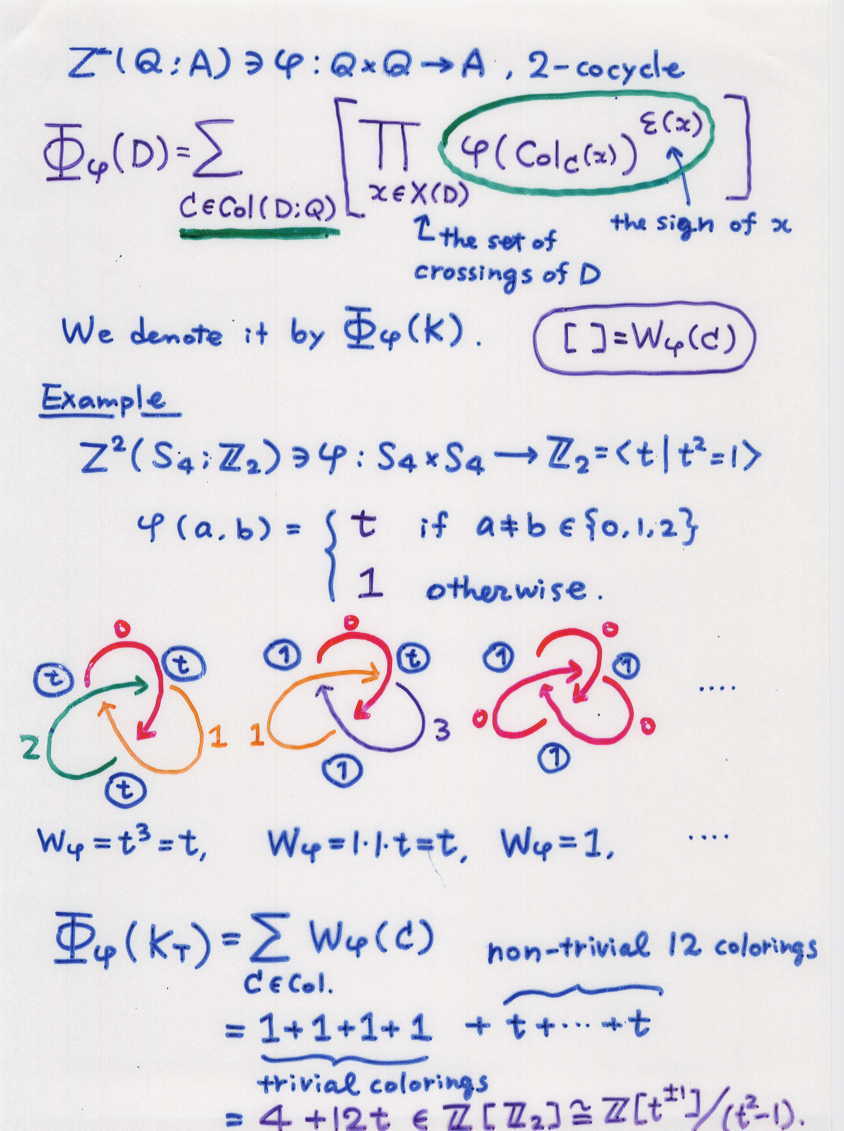 Z²(Q;A) ∋ φ : Q×Q → A , 2-cocycle
Φφ(D) = Σ [ Π φ(Col_C(x))^ε(x) ]
C∈Col(D;Q) x∈X(D)
the set of crossings of D
the sign of x
We denote it by Φφ(K). [ ]=Wφ(C)
Example
Z²(S₄;ℤ₂) ∋ φ : S₄×S₄ → ℤ₂=<t|t²=1>
φ(a,b) = { t if a≠b∈{0,1,2}
1 otherwise.
0 0 0
t t 1 t 1 1 ....
2 1 1 3 0 0
t 1 1
Wφ=t³=t, Wφ=1·1·t=t, Wφ=1, ....
Φφ(K_T) = Σ Wφ(C) non-trivial 12 colorings
C∈Col.
= 1+1+1+1 + t+···+t
trivial colorings
= 4+12t ∈ ℤ[ℤ₂] ≅ ℤ[t^±1]/(t²-1).